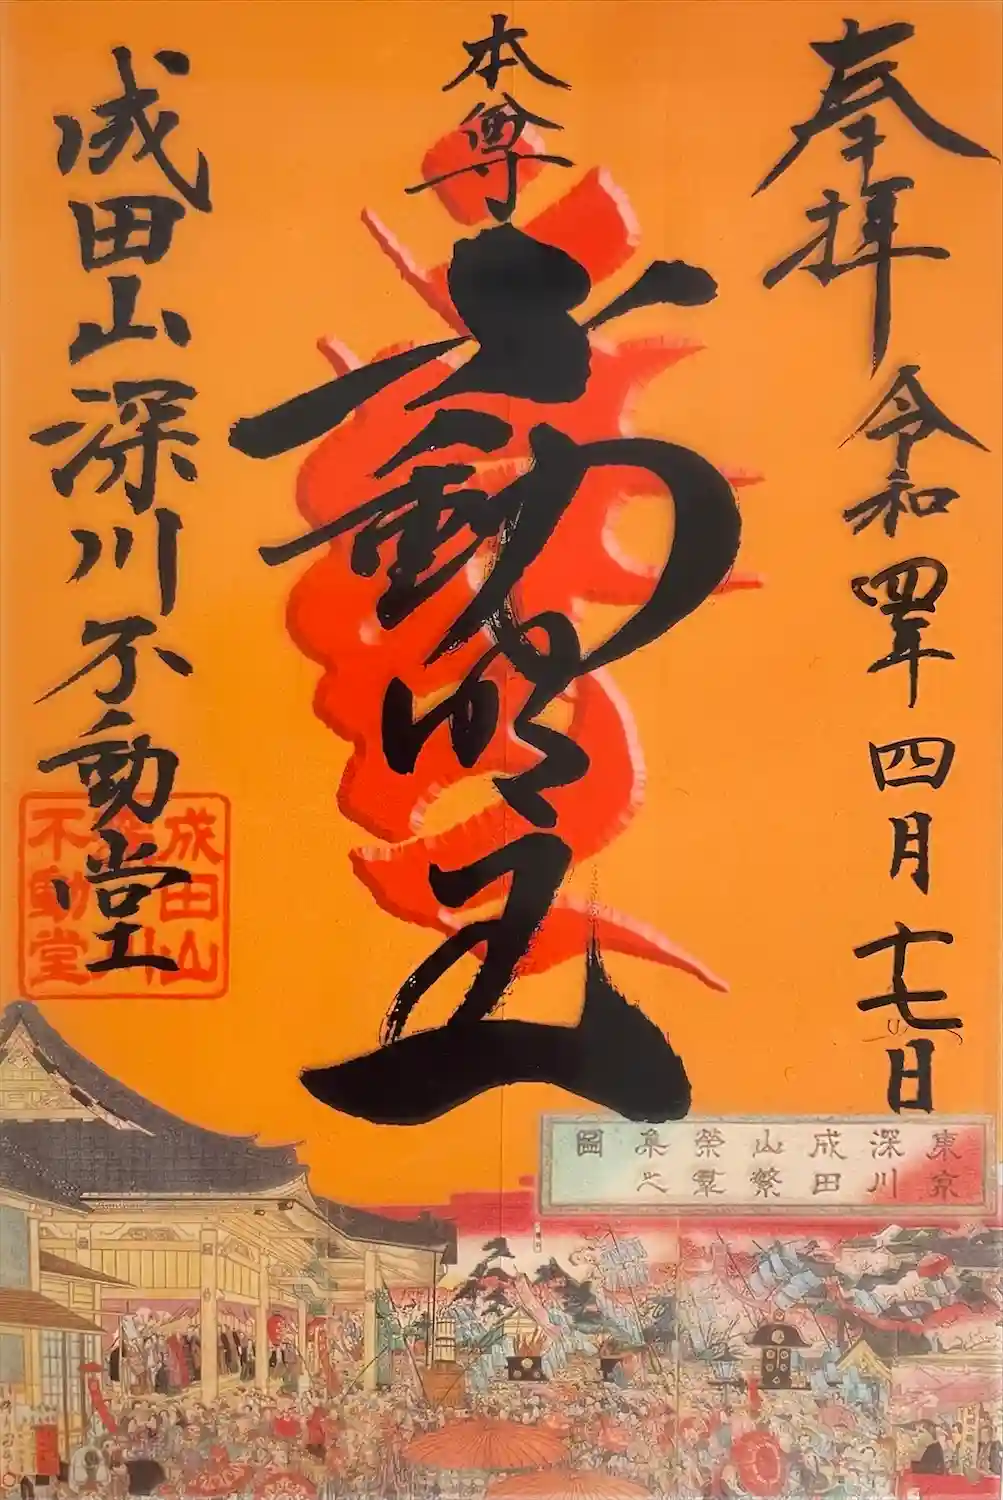 奉拝
令和四年四月十七日
本尊
不動明王
成田山深川不動堂
成田山
深川
不動堂
東京深川成田山繁榮羣集之圖